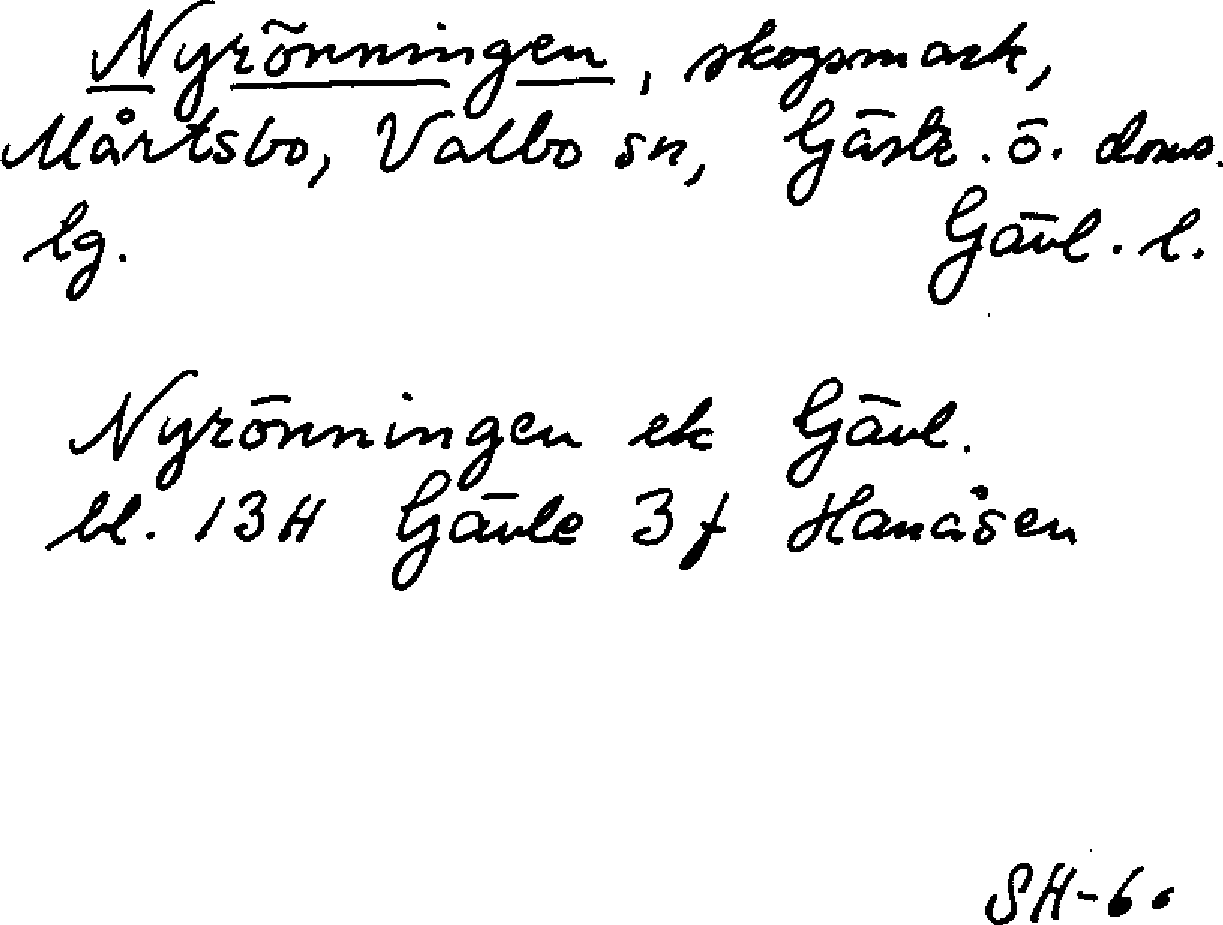 Nyrönningen, skogsmark,
Mårtsbo, Valbo sn, Gästr. ö. doms.
lg. Gävl. l.
Nyrönningen ek Gävl.
bl. 13H Gävle 3f Hanåsen
SH-60